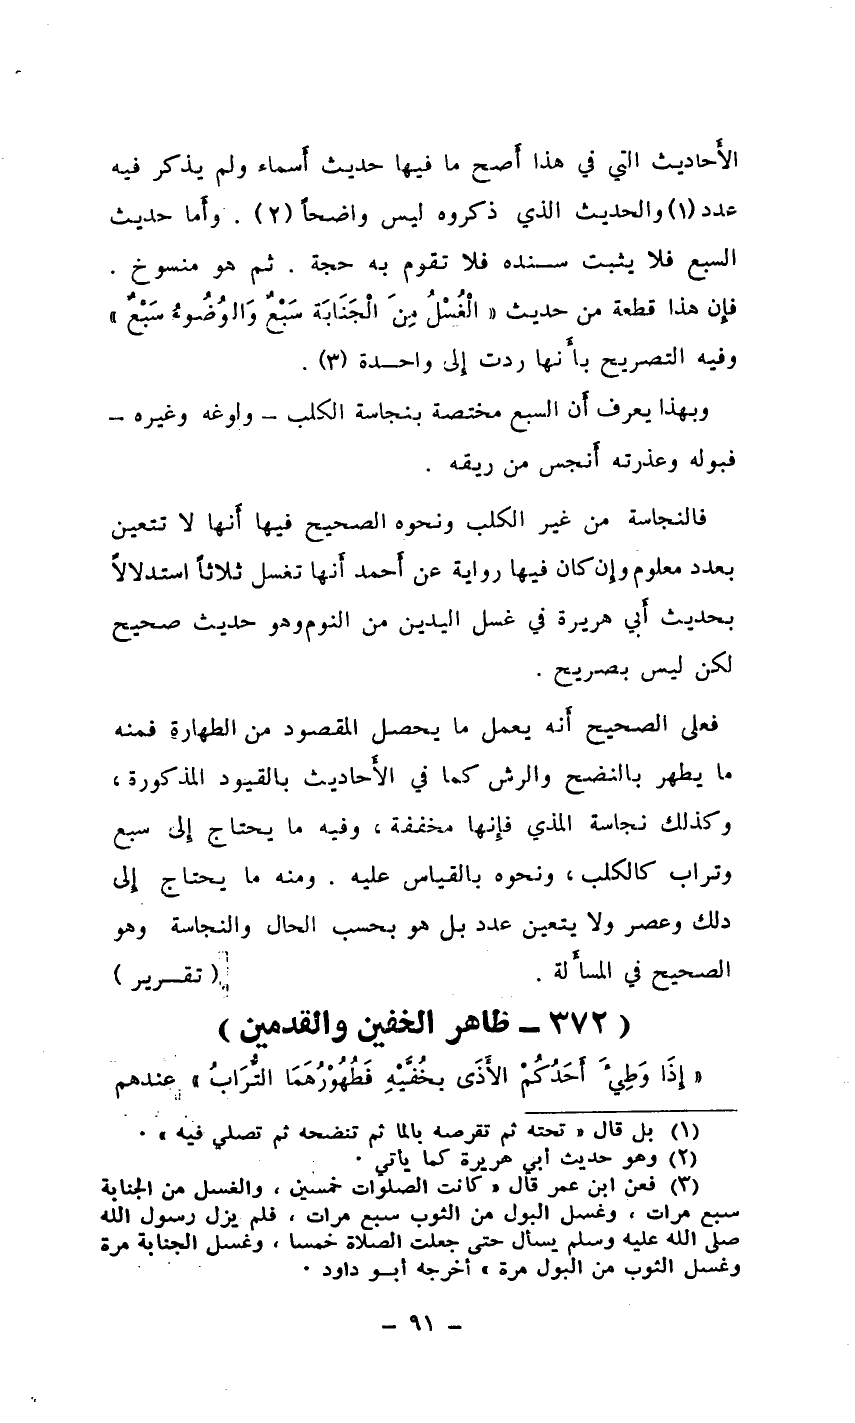 الأَحاديث التي في هذا أَصح ما فيها حديث أَسماء ولم يذكر فيه
عدد (١) والحديث الذي ذكروه ليس واضحاً (٢) . وأَما حديث
السبع فلا يثبت سـنده فلا تقوم به حجة . ثم هو منسوخ .
فإن هذا قطعة من حديث « الْغُسْلُ مِنَ الْجَنَابَة سَبْعٌ وَالوُضُوءُ سَبْعٌ »
وفيه التصريح بأَنها ردت إلى واحـدة (٣) .
وبهذا يعرف أَن السبع مختصة بنجاسة الكلب – ولوغه وغيره –
فبوله وعذرته أَنجس من ريقه .
فالنجاسة من غير الكلب ونحوه الصحيح فيها أَنها لا تتعين
بعدد معلوم وإن كان فيها رواية عن أَحمد أَنها تغسل ثلاثاً استدلالاً
بحديث أَبي هريرة في غسل اليدين من النوم وهو حديث صحيح
لكن ليس بصريح .
فعلى الصحيح أَنه يعمل ما يحصل المقصود من الطهارة فمنه
ما يطهر بالنضح والرش كما في الأَحاديث بالقيود المذكورة ،
وكذلك نجاسة المذي فإنها مخففة ، وفيه ما يحتاج إلى سبع
وتراب كالكلب ، ونحوه بالقياس عليه . ومنه ما يحتاج إلى
دلك وعصر ولا يتعين عدد بل هو بحسب الحال والنجاسة وهو
الصحيح في المسأَلة . ( تقـرير )
( ٣٧٢ – ظاهر الخفين والقدمين )
« إِذَا وَطِيءَ أَحَدُكُمْ الأَذَى بِخُفَّيْهِ فَطُهُوْرُهُمَا التُّرَابُ » عندهم
(١) بل قال « تحته ثم تقرصه بالما ثم تنضحه ثم تصلي فيه » .
(٢) وهو حديث أبي هريرة كما يأتي .
(٣) فعن ابن عمر قال « كانت الصلوات خمسين ، والغسل من الجنابة
سبع مرات ، وغسل البول من الثوب سبع مرات ، فلم يزل رسول الله
صلى الله عليه وسلم يسأل حتى جعلت الصلاة خمسا ، وغسل الجنابة مرة
وغسل الثوب من البول مرة » أخرجه أبـو داود .
– ٩١ –